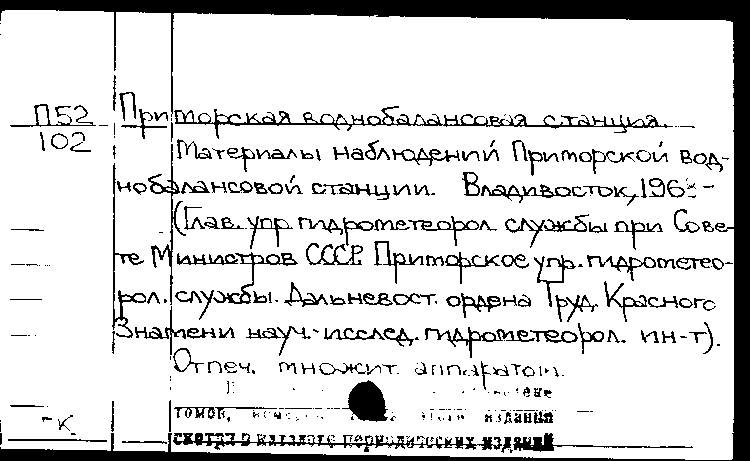 П52
102
Приморская воднобалансовая станция.
Материалы наблюдений Приморской вод-
нобалансовой станции. Владивосток, 196
(Глав. упр. гидрометеорол. службы при Сове-
те Министров СССР. Приморское упр. гидрометео-
рол. службы. Дальневост. ордена Труд. Красного
Знамени науч.-исслед. гидрометеорол. ин-т).
Отпеч. множит. аппаратом.
томов, издания
смотри в каталоге периодических изданий
-К